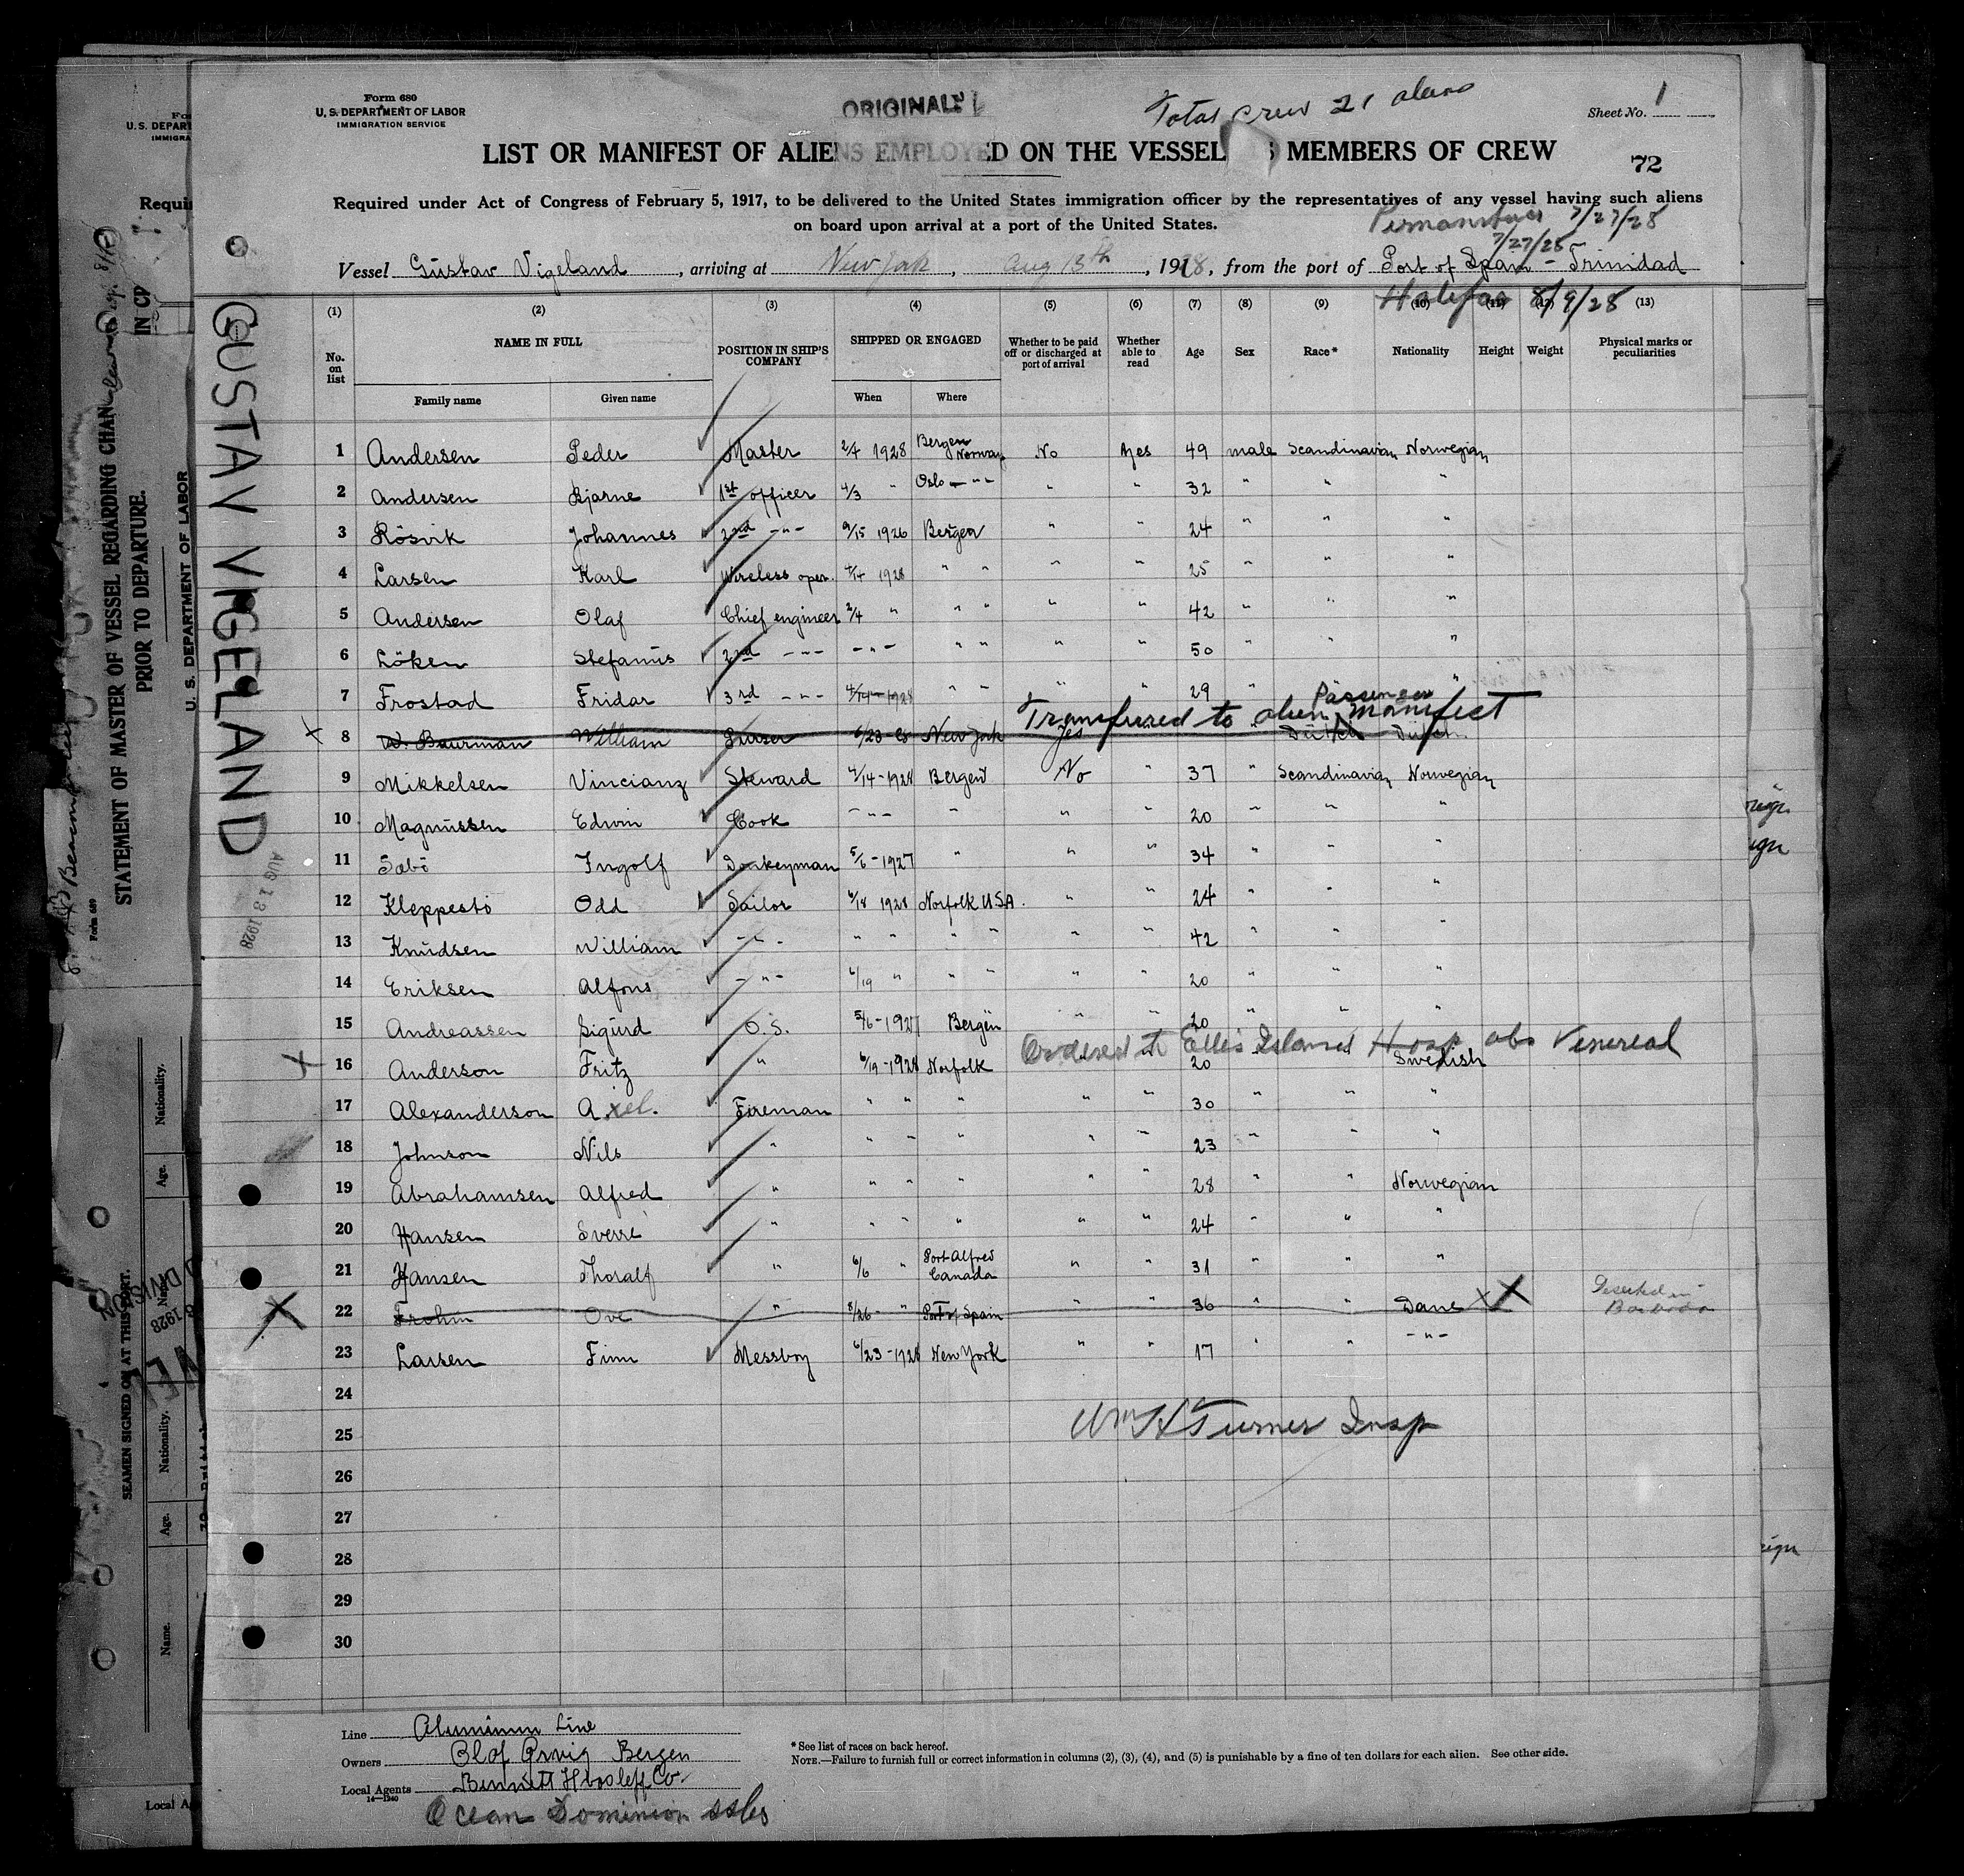 Form 680
U. S. DEPARTMENT OF LABOR
IMMIGRATION SERVICE
ORIGINAL
Total crew 21 aliens
Sheet No. 1
LIST OR MANIFEST OF ALIENS EMPLOYED ON THE VESSEL MEMBERS OF CREW
72
Required under Act of Congress of February 5, 1917, to be delivered to the United States immigration officer by the representatives of any vessel having such aliens
on board upon arrival at a port of the United States.
7/27/28
7/27/28
Vessel Gustav Vigeland, arriving at New York, Aug 13th, 1928, from the port of Port of Spain - Trinidad
Halifax 8/9/28
(1) (2) (3) (4) (5) (6) (7) (8) (9) (10) (11) (12) (13)
No. on list
NAME IN FULL
Family name
Given name
POSITION IN SHIP'S COMPANY
SHIPPED OR ENGAGED
When
Where
Whether to be paid off or discharged at port of arrival
Whether able to read
Age
Sex
Race*
Nationality
Height
Weight
Physical marks or peculiarities
1 Andersen Peder Master 2/4 1928 Bergen Norway No Yes 49 male Scandinavian Norwegian
2 Andersen Bjarne 1st officer 4/3 " Oslo -"- " " 32 " " "
3 Rösvik Johannes 2nd -"- 9/15 1926 Bergen " " 24 " " "
4 Larsen Karl Wireless oper. 4/14 1928 " " " " 25 " " "
5 Andersen Olaf Chief engineer 2/4 " " " " " 42 " " "
6 Löken Stefanus 2nd -"- -"- " " " " 50 " " "
7 Frostad Fridar 3rd -"- 4/14-1928 " " " " 29 " "
Transferred to alien Passenger manifest
8 W. Buurman William Purser 6/23-28 New York Yes Dutch Dutch
9 Mikkelsen Vincianz Steward 4/14-1928 Bergen No " 37 " Scandinavian Norwegian
10 Magnussen Edwin Cook -"- " " " 20 " " "
11 Sæbö Ingolf Donkeyman 5/6-1927 " " " 34 " " "
12 Kleppestö Odd Sailor 6/18 1928 Norfolk USA. " " 24 " " "
13 Knudsen William -"- " " " " " " 42 " " "
14 Eriksen Alfons -"- 6/19 " " " " " 20 " " "
15 Andreassen Sigurd O.S. 5/6-1927 Bergen " " 20 " " "
Ordered to Ellis Island Hosp obs Venereal
16 Anderson Fritz " 6/19-1928 Norfolk " " 20 " " Swedish
17 Alexanderson Axel. Fireman " " " " " 30 " " "
18 Johnson Nils " " " " " " 23 " " "
19 Abrahamsen Alfred " " " " " " 28 " " Norwegian
20 Hansen Sverre " " " " " " 24 " " "
21 Hansen Thoralf " 6/6 " Port Alfred Canada " " 31 " " "
22 Frohm Ove " 8/26- " Port of Spain " " 36 " " Dane X X Deserted in Barbados
23 Larsen Finn Messboy 6/23-1928 New York " " 17 " " -"-
24
25
Wm H Turner Insp
26
27
28
29
30
Line Aluminum Line
Owners Olaf Orvig Bergen
Local Agents Bennett Hvoslef Co.
14—1240
Ocean Dominion
* See list of races on back hereof.
NOTE.—Failure to furnish full or correct information in columns (2), (3), (4), and (5) is punishable by a fine of ten dollars for each alien. See other side.
GUSTAV VIGELAND
AUG 13 1928
STATEMENT OF MASTER OF VESSEL REGARDING CHAN
PRIOR TO DEPARTURE.
U. S. DEPARTMENT OF LABOR
Form 689
SEAMEN SIGNED ON AT THIS PORT.
Nationality.
Age.
Name.
Nationality.
Age.
Name.
U. S. DEPART
IMMIGRA
Requir
Local A